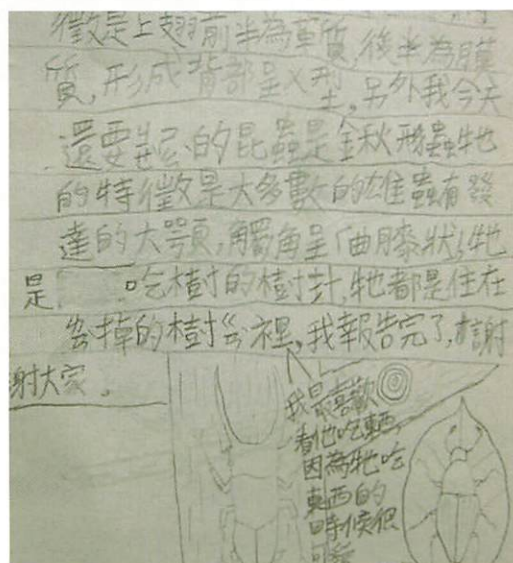 徵是上翅前半為革質,後半為膜
質,形成背部呈X型。另外我今天
還要的昆蟲是鍬形蟲牠
的特徵是大多數的雄蟲有發
達的大顎,觸角呈「曲膝狀」牠
是吃樹的樹汁,牠都是住在
掉的樹裡,我報告完了,謝
謝大家。
我最喜歡
看他吃東西,
因為牠吃
東西的
時候很
可愛